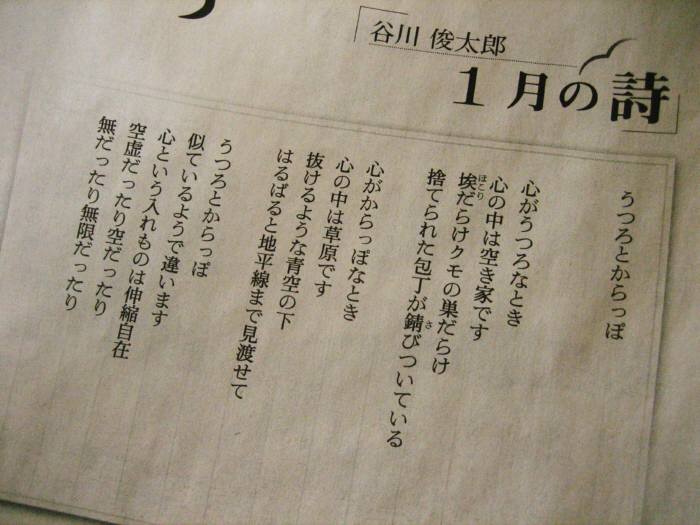 谷川 俊太郎
1月の詩
うつろとからっぽ
心がうつろなとき
心の中は空き家です
埃だらけクモの巣だらけ
捨てられた包丁が錆びついている
心がからっぽなとき
心の中は草原です
抜けるような青空の下
はるばると地平線まで見渡せて
うつろとからっぽ
似ているようで違います
心という入れものは伸縮自在
空虚だったり空だったり
無だったり無限だったり